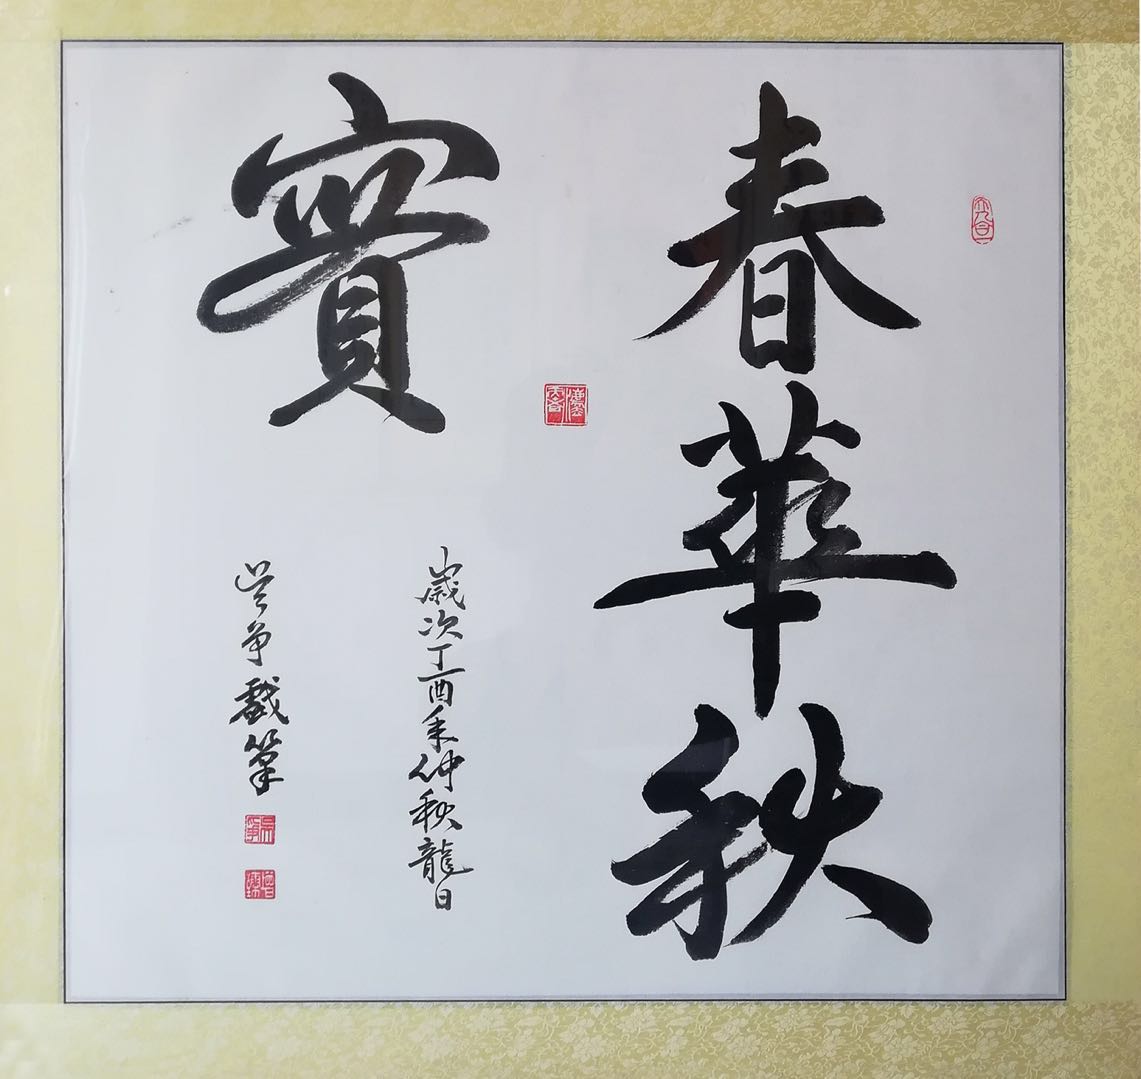 春華秋
實
歲次丁酉年仲秋龍日
吳爭戲筆